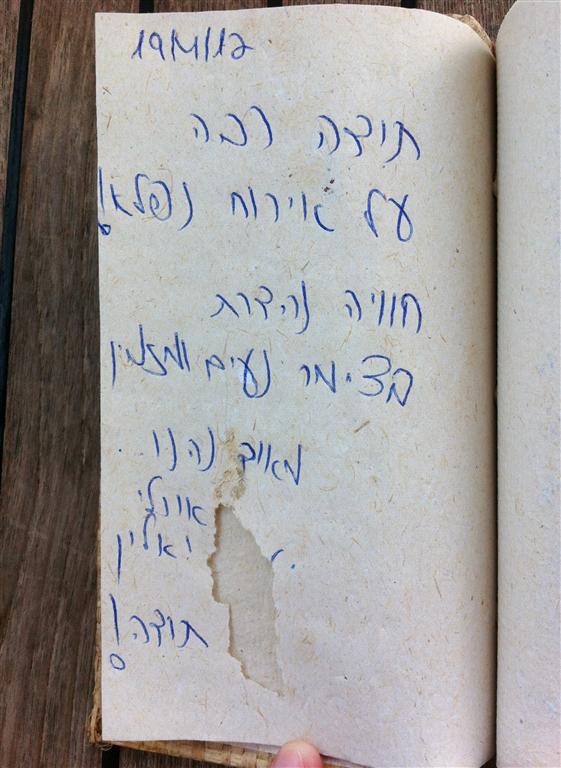 19/11/12
תודה רבה
על אירוח נפלא!
חוויה נהדרת
בצימר נעים ומזמין
מאוד נהננו..
אוולי
ואלין
תודה!